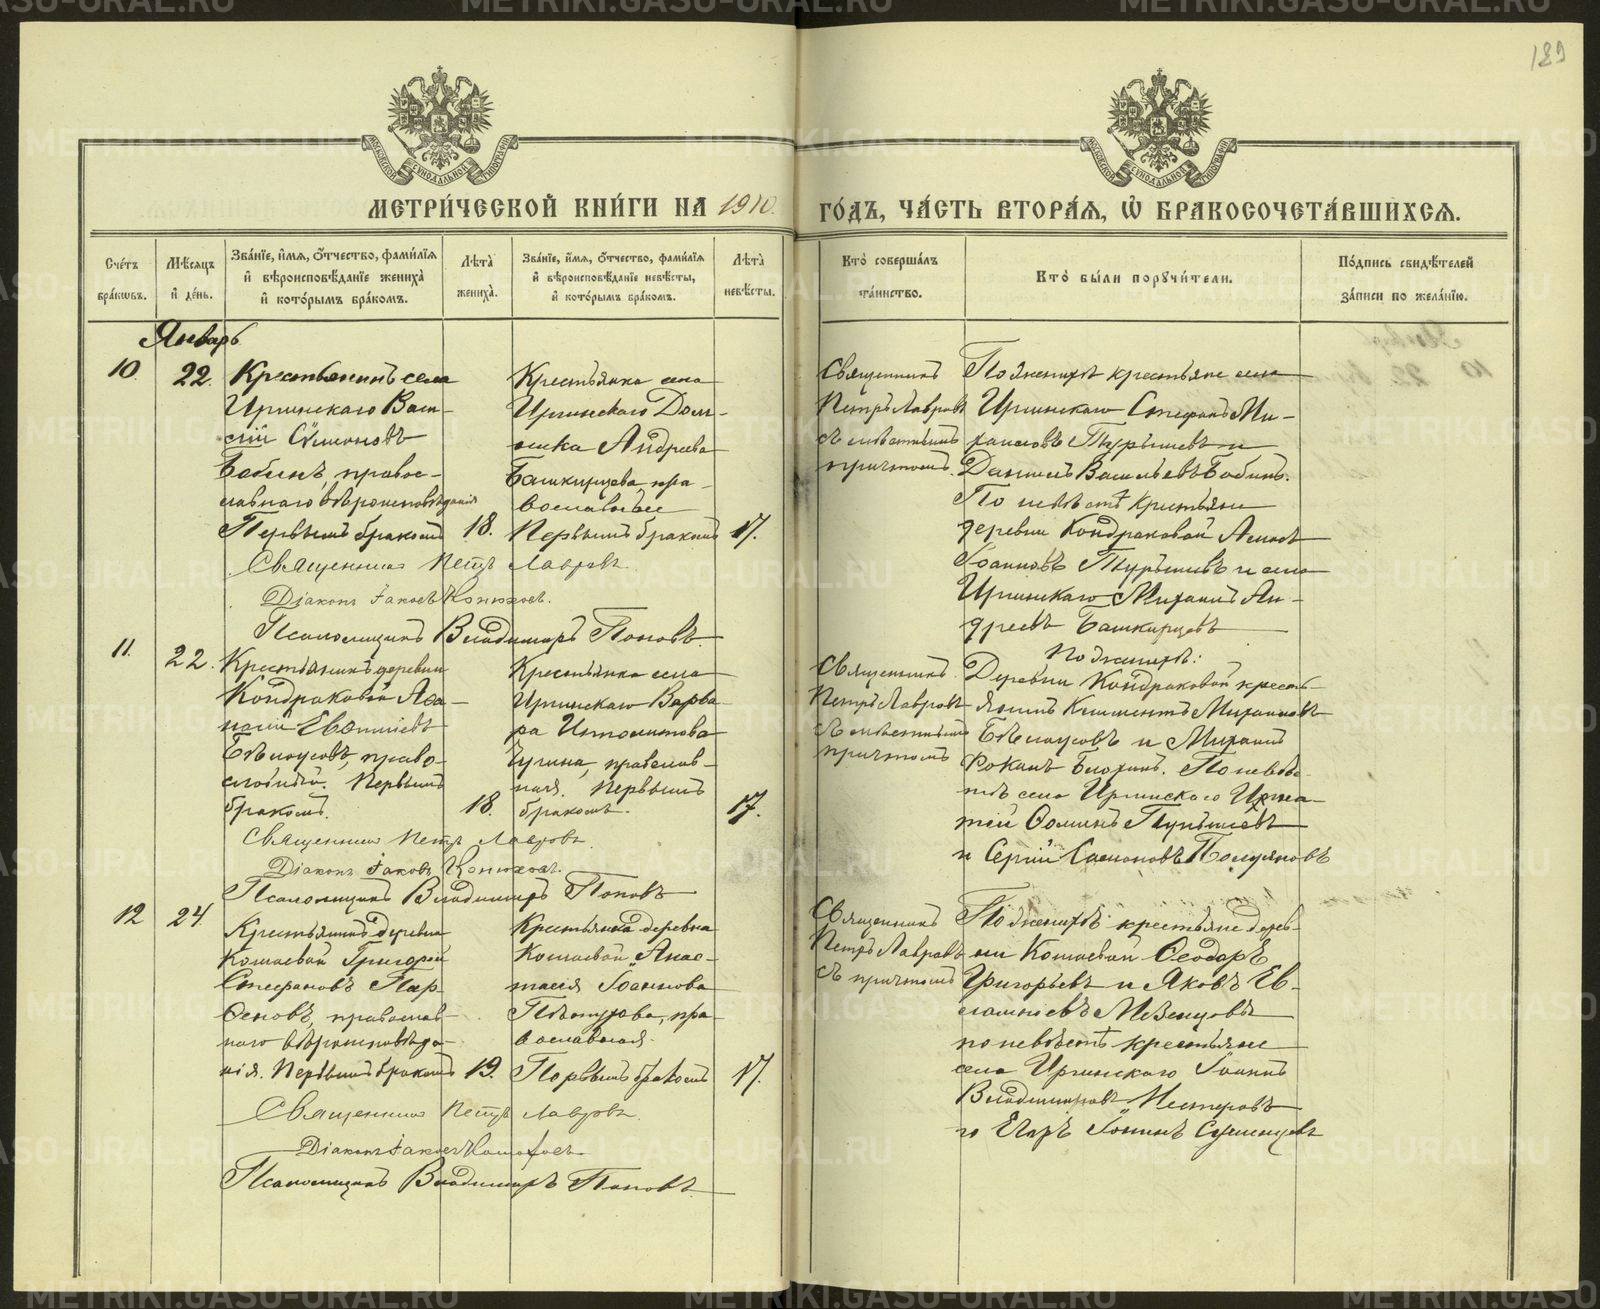 189
МЕТРИ́ЧЕСКОЙ КНИ́ГИ НА 1910 ГО́ДЪ, ЧА́СТЬ ВТОРА́Я, Ѽ БРАКОСОЧЕТА́ВШИХСЯ.
Сче́тъ бра́ковъ.
Мѣ́сяцъ и де́нь.
Зва́нїе, и́мя, о́тчество, фами́лїя и вѣроисповѣ́данїе жениха̀ и кото́рымъ бра́комъ.
Лѣта̀ жениха̀.
Зва́нїе, и́мя, о́тчество, фами́лїя и вѣроисповѣ́данїе невѣ́сты, и кото́рымъ бра́комъ.
Лѣта̀ невѣ́сты.
Кто̀ соверша́лъ та́инство.
Кто̀ бы́ли поручи́тели.
По́дпись свидѣ́телей за́писи по жела́нїю.
Январь
10. 22.
Крестьянинъ села
Иргинскаго Васи-
лій Сѵмоновъ
Бабинъ, правос-
лавнаго вѣроисповѣданія
Первымъ бракомъ
18.
Крестьянка села
Иргинскаго Дом-
ника Андреева
Башкирцева пра-
вославные
Первымъ бракомъ
17.
Священникъ
Петръ Лавровъ
съ мѣстнымъ
причтомъ.
По женихѣ крестьяне села
Иргинскаго Стефанъ Ми-
хаиловъ Турышевъ и
Даніилъ Васильевъ Бабинъ.
По невѣстѣ крестьяне
деревни Кондраковой
Іоанновъ Турышевъ и села
Иргинскаго Михаилъ Ан-
дреевъ Башкирцевъ
Священникъ Петръ Лавровъ.
Діаконъ Іаковъ Конюховъ.
Псаломщикъ Владимиръ Поповъ
11. 22.
Крестьянинъ деревни
Кондраковой Аѳа-
насій
Бѣлоусовъ, право-
славный. Первымъ
бракомъ.
18.
Крестьянка села
Иргинскаго Варва-
ра Ипполитова
Чугина, православ-
ная. Первымъ
бракомъ.
17.
Священникъ
Петръ Лавровъ
съ мѣстнымъ
причтомъ
По женихѣ:
Деревни Кондраковой кресть-
яне Климентъ Михаиловъ
Бѣлоусовъ и Михаилъ
Фокинъ Блохинъ. По невѣс-
тѣ села Иргинскаго Игна-
тій Ѳоминъ Турышевъ
и Сергій Самсоновъ Полуяновъ
Священникъ Петръ Лавровъ.
Діаконъ Іаковъ Конюховъ.
Псаломщикъ Владимиръ Поповъ
12 24
Крестьянинъ деревни
Кошаевой Григорій
Стефановъ Пар-
ѳеновъ, православ-
наго вѣроисповѣда-
нія. Первымъ бракомъ
19.
Крестьянка деревни
Кошаевой Анас-
тасія Іоаннова
Пѣтухова, пра-
вославная.
Первымъ бракомъ
17.
Священникъ
Петръ Лавровъ
съ причтомъ
По женихѣ: крестьяне дерев-
ни Кошаевой Ѳеодоръ
Григорьевъ и Яковъ Ев-
лампіевъ Мѣзенцовъ
по невѣстѣ крестьяне
села Иргинскаго Іоаннъ
Владимировъ Нестеровъ
и Егоръ Іонинъ
Священникъ Петръ Лавровъ.
Діаконъ Іаковъ Конюховъ
Псаломщикъ Владимиръ Поповъ